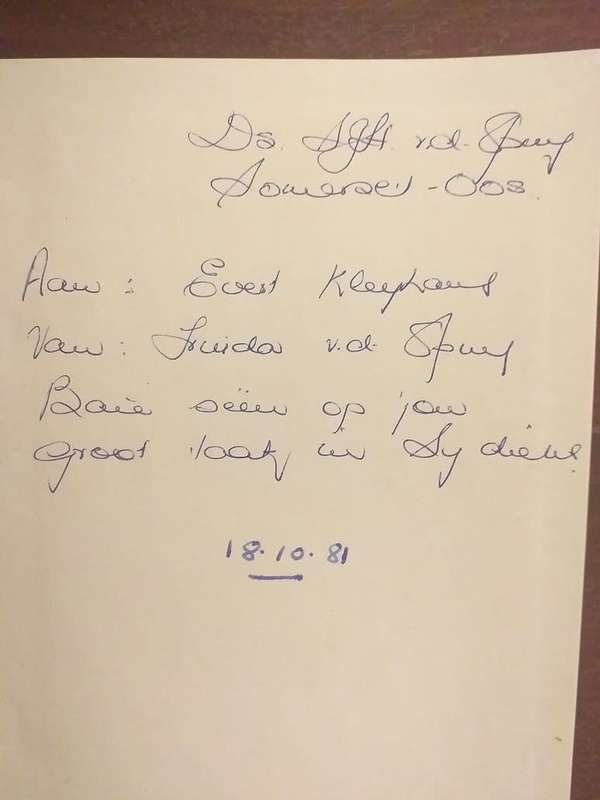 Ds. v.d. Spuy
Somerset-Oos.
Aan: Evert Kleynhans
Van: Truida v.d. Spuy
Baie seën op jou
groot taak in Sy diens.
18.10.81